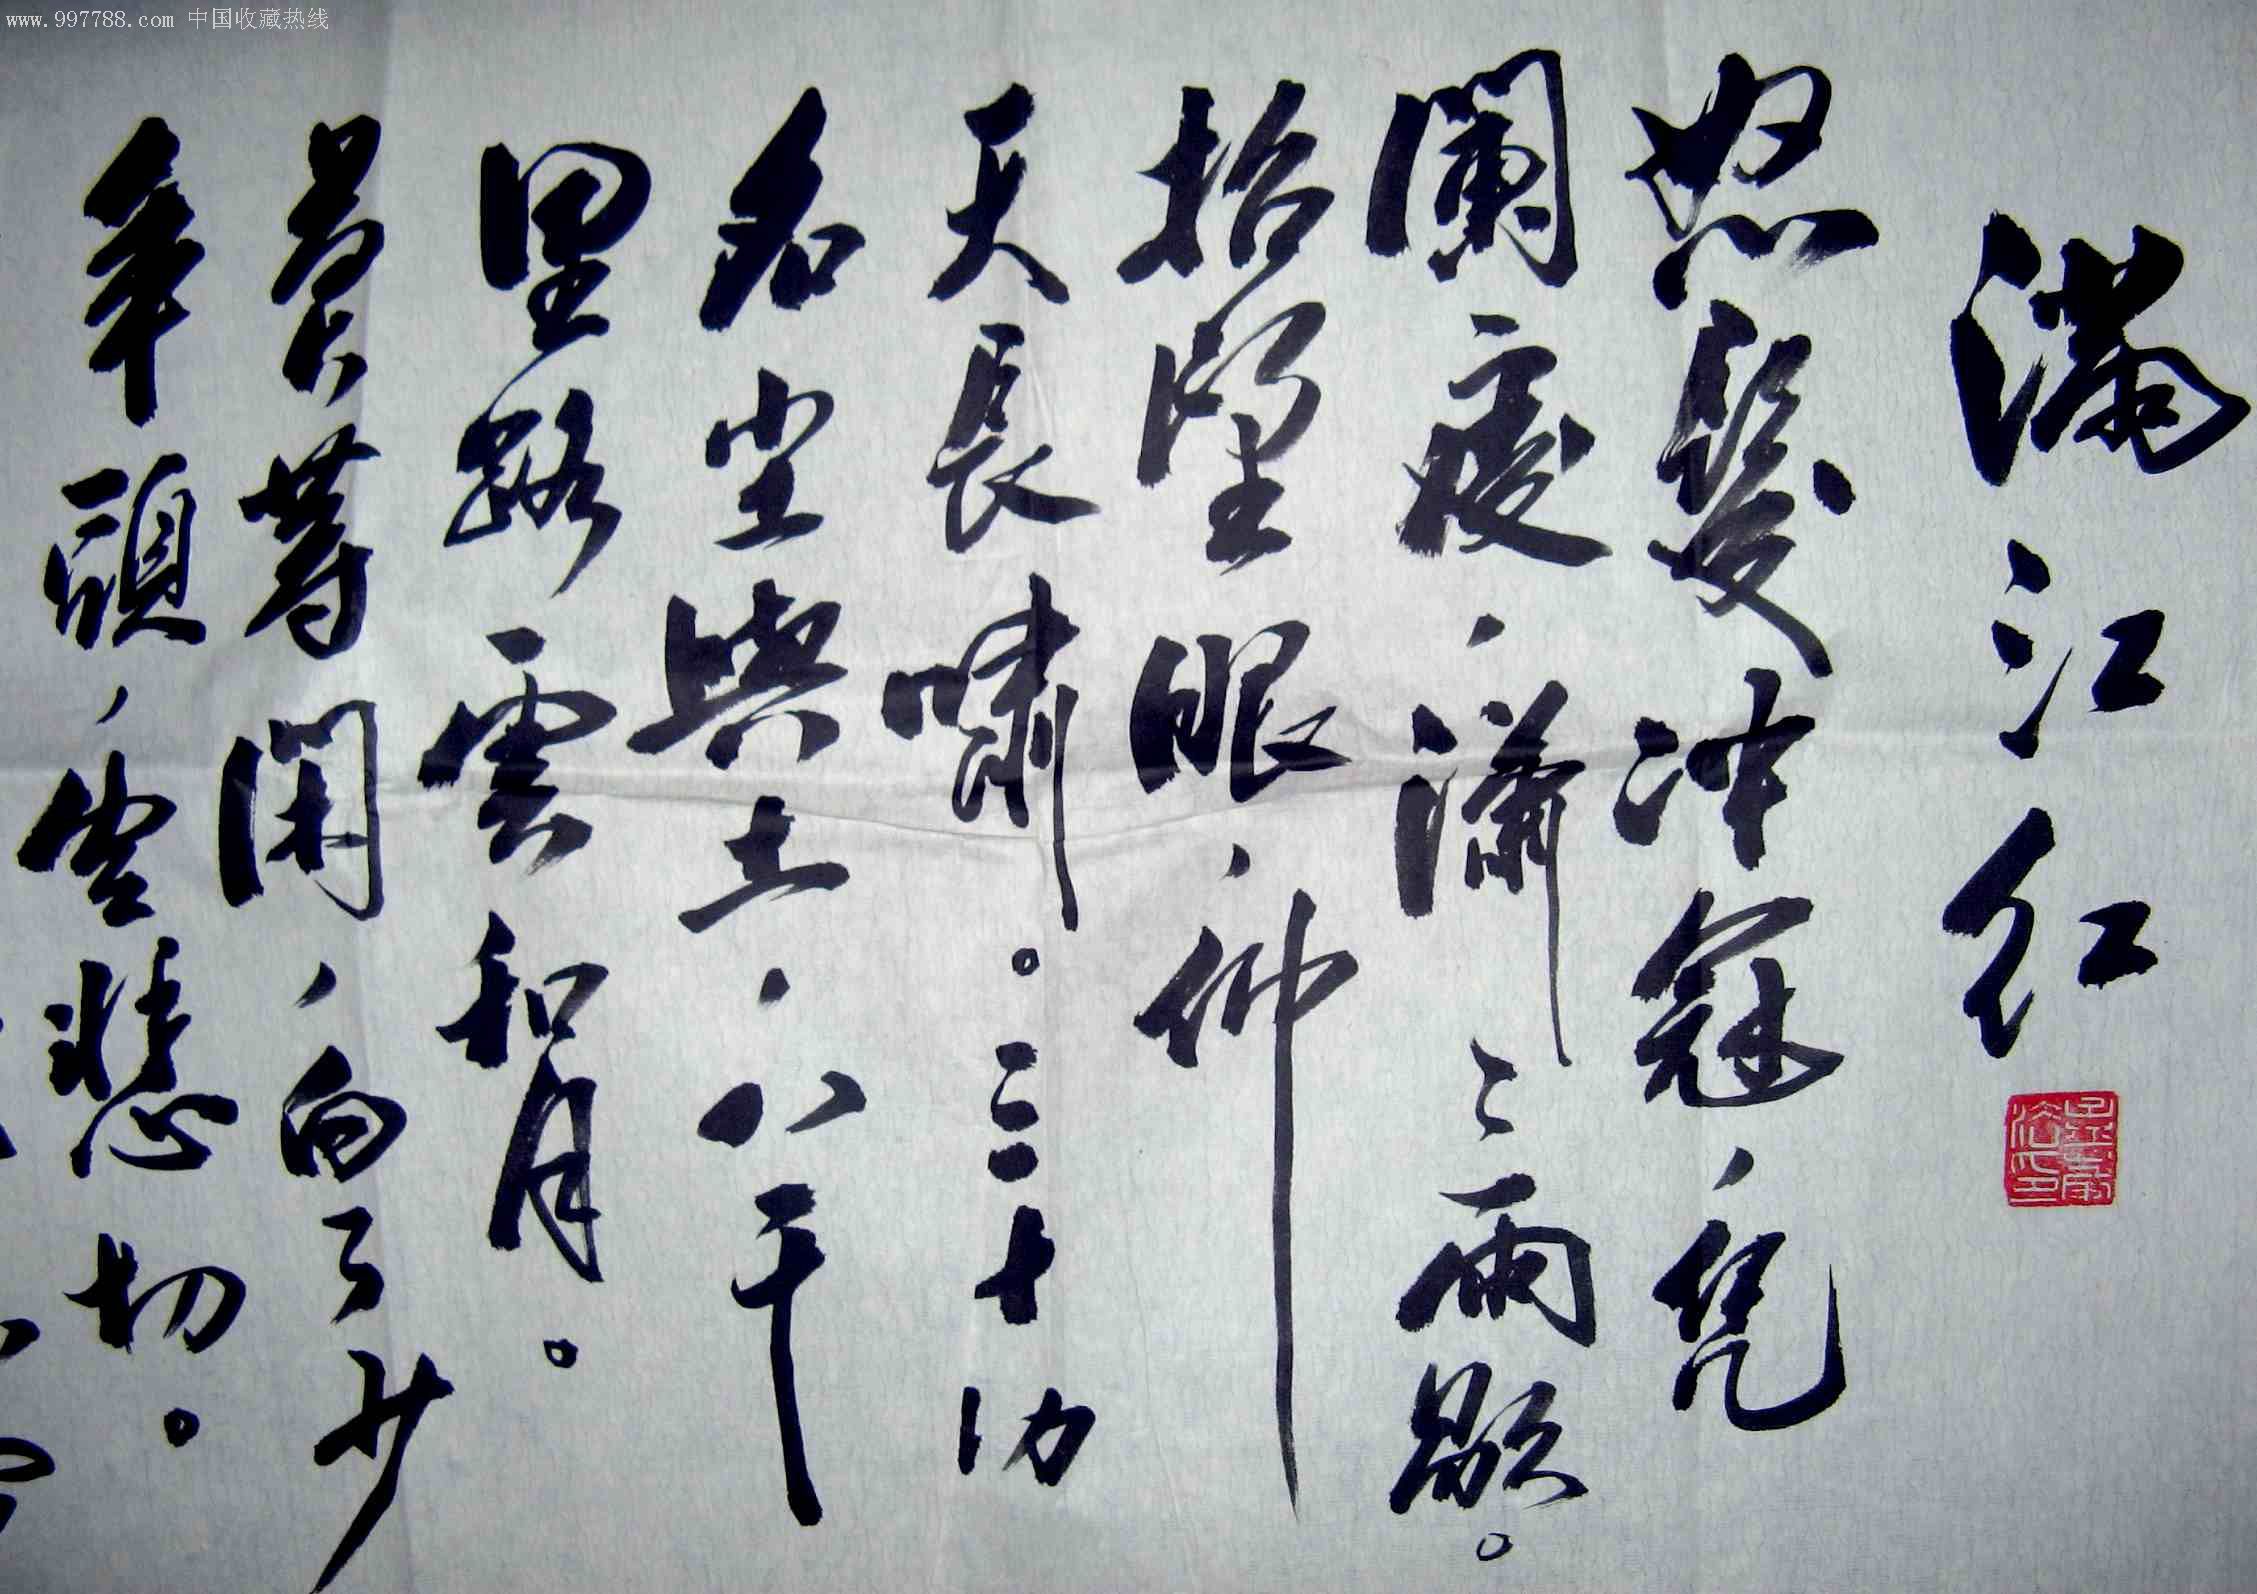 www.997788.com 中国收藏热线
满江红
怒髮冲冠、凭
闌處、瀟瀟雨歇。
抬望眼、仰
天長嘯。三十功
名尘與土、八千
里路雲和月。
莫等闲、白了少
年頭、空悲切。